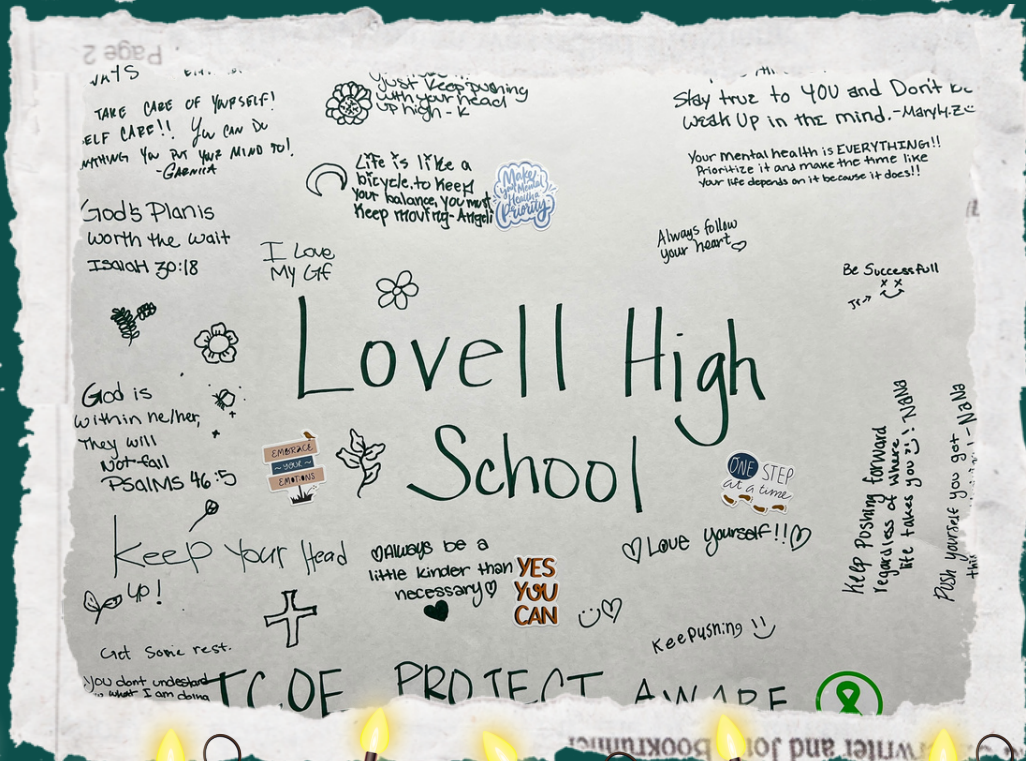 Page 2
TAKE CARE OF YOURSELF!
ELF CARE!! YOU CAN DO
NYTHING YOU PUT YOUR MIND TO!
-GARNICA
just keep pushing
with your head
up high - K
Stay true to YOU and Don't be
weak Up in the mind.-MaryH.Z
Your mental health is EVERYTHING!!
Prioritize it and make the time like
Your life depends on it because it does!!
Life is like a
bicycle. to keep
your balance, you must
Keep moving- Angeli
Make
your Mental
Health a
Priority
God's Plan is
worth the wait
ISaiaH 30:18
I Love
My Gf
Always follow
your heart
Be Successfull
Jr
Lovell High
School
God is
within he/her,
They will
Not fail
PSalMS 46:5
EMBRACE
~ YOUR ~
EMOTIONS
ONE STEP
at a time
Keep Pushing forward
regardless of where
life takes you : NaNa
Push yourself you got
- NaNa
Keep Your Head
up!
Always be a
little kinder than
necessary
YES
YOU
CAN
Love yourself!!
Keep pushing
Get some rest.
you dont undestand
what I am doing
TCOE PROJECT AWARE
rwriter and Joni Bookrunner